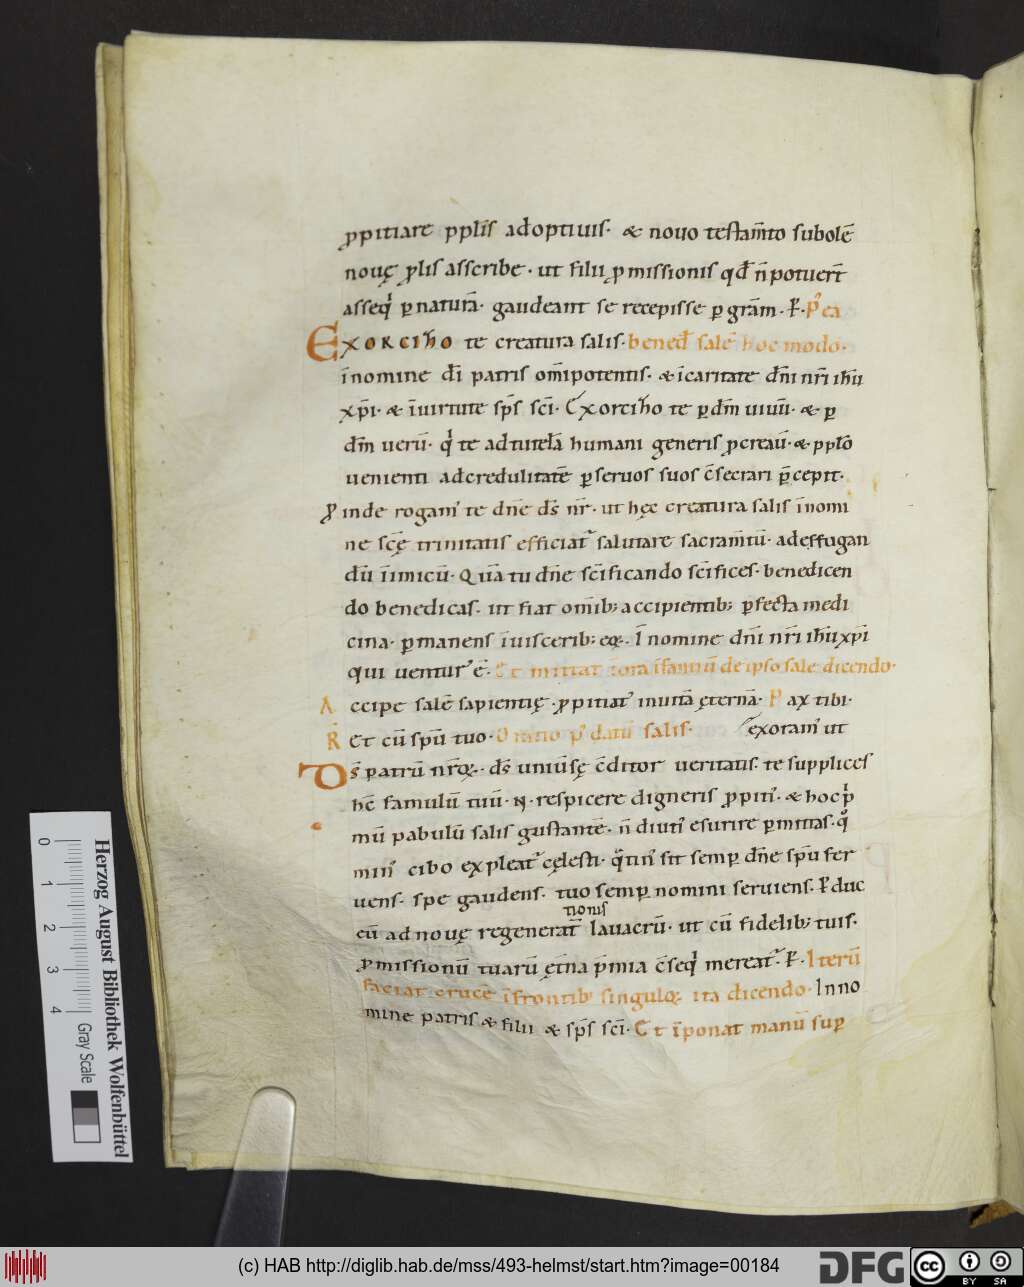 ꝓpitiare ppl̄is adoptiuis· & nouo testam̄to subolē
nouę ꝓlis asscribe· ut filii ꝓmissionis qđ n̄ potuer̄t
asseq' ꝑ naturā· gaudeant se recepisse ꝑ grām· P' ea
Exorciho te creatura salis· bened̄ salē hoc modo·
īnomine dī patris om̄ipotentis· & īcaritate dn̄i nr̄i ih̄u
xp̄i· & īuirtute sp̄s sc̄i· Exorciho te ꝑ dm̄ uiuū· & ꝑ
dm̄ uerū· q' te ad tutelā humani generis ꝓcreau̅· & pplo
uenienti ad credulitatē ꝑ seruos suos c̄secrari p̄cepit·
Ꝓ inde rogam' te dn̄e ds̄ nr̄· ut hęc creatura salis īnomi
ne sc̄ę trinitatis efficiat' salutare sacram̄tū· ad effugan
dū īimicū· Quā tu dn̄e sc̄ificando sc̄ifices· benedicen
do benedicas· ut fiat om̄ib; accipientib; ꝑfecta medi
cina· ꝑmanens īuiscerib; eoꝝ· I nomine dn̄i nr̄i ih̄u xp̄i
qui uentur' ē· Et mittat īora īfantiū de ipso sale dicendo·
Accipe salē sapientię· ꝓpitiat' inuitā ęternā· Pax tibi·
R Et cū spū tuo· Oratio p' datū salis· exoram' ut
Ds̄ patrū nr̄oꝝ· ds̄ uniuersę c̄ditor ueritatis· te supplices
hc̄ famulū tuū· N· respicere digneris ꝓpiti'· & hoc p̄
mū pabulū salis gustantē· n̄ diuti' esurire ꝑmittas· q'
min' cibo expleat' cęlesti· q'tin' sit semꝑ dn̄e spū fer
uens· spe gaudens· tuo semꝑ nomini seruiens· & duc
tionis
eū ad nouę regenerat̄ lauacrū· ut cū fidelib; tuis·
ꝓmissionū tuarū ęt̄na p̄mia c̄seq' mereat'· Iterū
faciat crucē īfrontib' singuloꝝ ita dicendo· Inno
mine patris & filii & sp̄s sc̄i· Et īponat manū suꝑ
Herzog August Bibliothek Wolfenbüttel
0 1 2 3 4
Gray Scale
(c) HAB http://diglib.hab.de/mss/493-helmst/start.htm?image=00184
DFG
cc BY SA